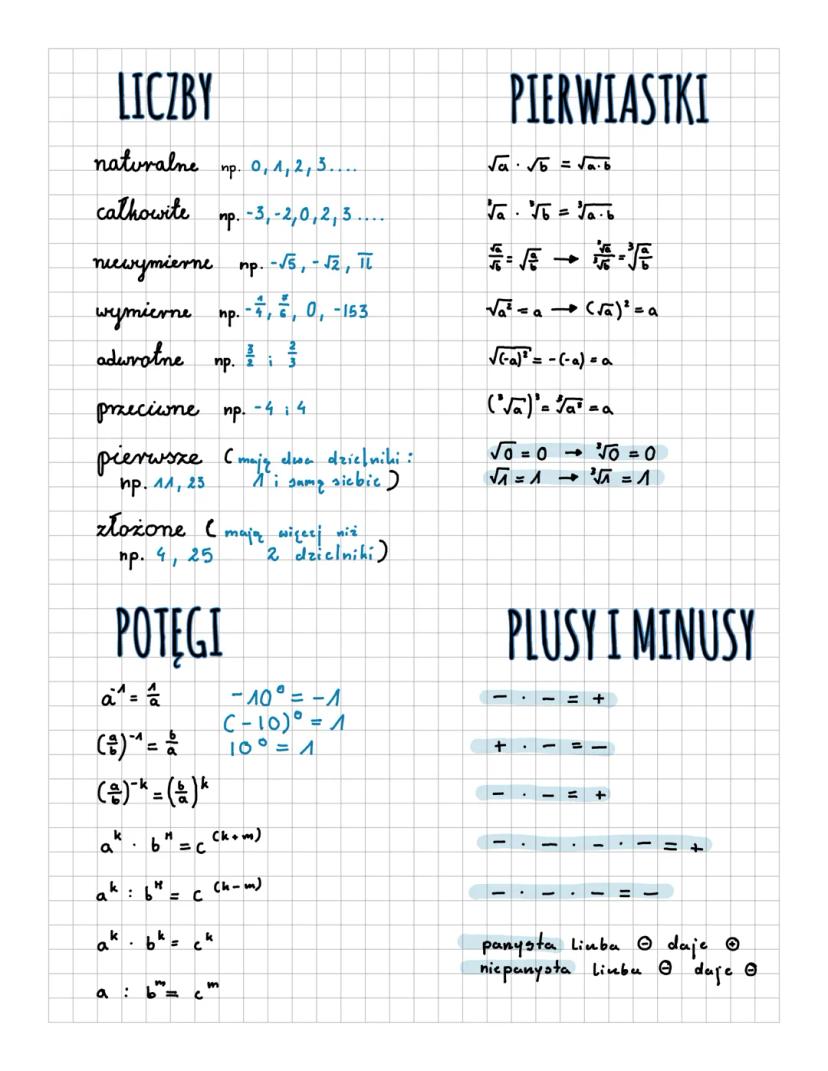 LICZBY
naturalne np. 0, 1, 2, 3....
całkowite np. -3, -2, 0, 2, 3....
niewymierne np. -√5, -√2, π
wymierne np. -1/4, 7/6, 0, -153
odwrotne np. 3/2 i 2/3
przeciwne np. -4 i 4
pierwsze (mają dwa dzielniki:
np. 11, 23 1 i samą siebie)
złożone (mają więcej niż
np. 4, 25 2 dzielniki)
PIERWIASTKI
√a · √b = √a·b
³√a · ³√b = ³√a·b
√a/√b = √a/b → ³√a/³√b = ³√a/b
√a² = a → (√a)² = a
√(-a)² = -(-a) = a
(³√a)³ = ³√a³ = a
√0 = 0 → ³√0 = 0
√1 = 1 → ³√1 = 1
POTĘGI
a⁻¹ = 1/a -10⁰ = -1
(-10)⁰ = 1
(a/b)⁻¹ = b/a 10⁰ = 1
(a/b)⁻ᵏ = (b/a)ᵏ
aᵏ · bᵐ = c⁽ᵏ⁺ᵐ⁾
aᵏ : bᵐ = c⁽ᵏ⁻ᵐ⁾
aᵏ · bᵏ = cᵏ
a : bᵐ = cᵐ
PLUSY I MINUSY
- · - = +
+ · - = -
- · - = +
- · - · - · - = +
- · - · - = -
parzysta liczba ⊖ daje ⊕
nieparzysta liczba ⊖ daje ⊖